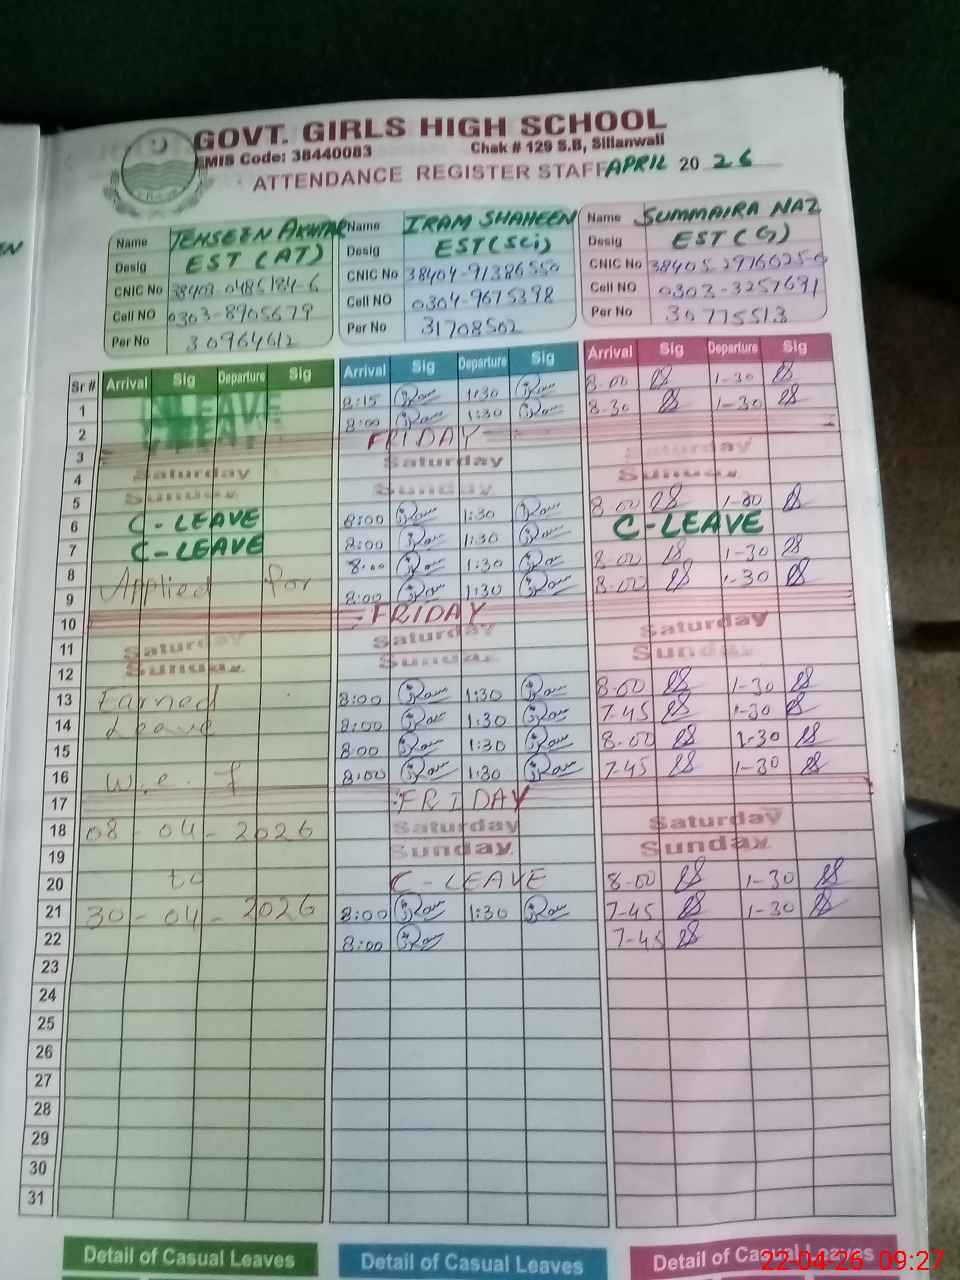 GOVT. GIRLS HIGH SCHOOL
EMIS Code: 38440083 Chak # 129 S.B, Sillanwali
ATTENDANCE REGISTER STAFF APRIL 2026
Name TEHSEEN AKHTAR Name IRAM SHAHEEN Name SUMMAIRA NAZ
Desig EST (AT) Desig EST (Sci) Desig EST (G)
CNIC No CNIC No 38404-91386550 CNIC No
Cell NO 0303-8905679 Cell NO 0304-9675398 Cell NO 0303-3257691
Per No 30964612 Per No 31708502 Per No 30775513
Sr # Arrival Sig Departure Sig Arrival Sig Departure Sig Arrival Sig Departure Sig
1 LEAVE 8:15 1:30 8.00 1-30
2 8:00 1:30 8.30 1-30
3 FRIDAY
4 Saturday Saturday Saturday
5 Sunday Sunday Sunday
6 C-LEAVE 8:00 1:30 8.00 1-30
7 C-LEAVE 8:00 1:30 C-LEAVE
8 Applied for 8:00 1:30 8.00 1-30
9 8:00 1:30 8.00 1-30
10 FRIDAY
11 Saturday Saturday Saturday
12 Sunday Sunday Sunday
13 Earned 8:00 1:30 8.00 1-30
14 Leave 8:00 1:30 7-45 1-30
15 8:00 1:30 8.00 1-30
16 w.e.f 8:00 1:30 7-45 1-30
17 FRIDAY
18 08-04-2026 Saturday Saturday
19 Sunday Sunday
20 to C-LEAVE 8-00 1-30
21 30-04-2026 8:00 1:30 7-45 1-30
22 8:00 7-45
23
24
25
26
27
28
29
30
31
Detail of Casual Leaves Detail of Casual Leaves Detail of Casual Leaves
22-04-26 09:27